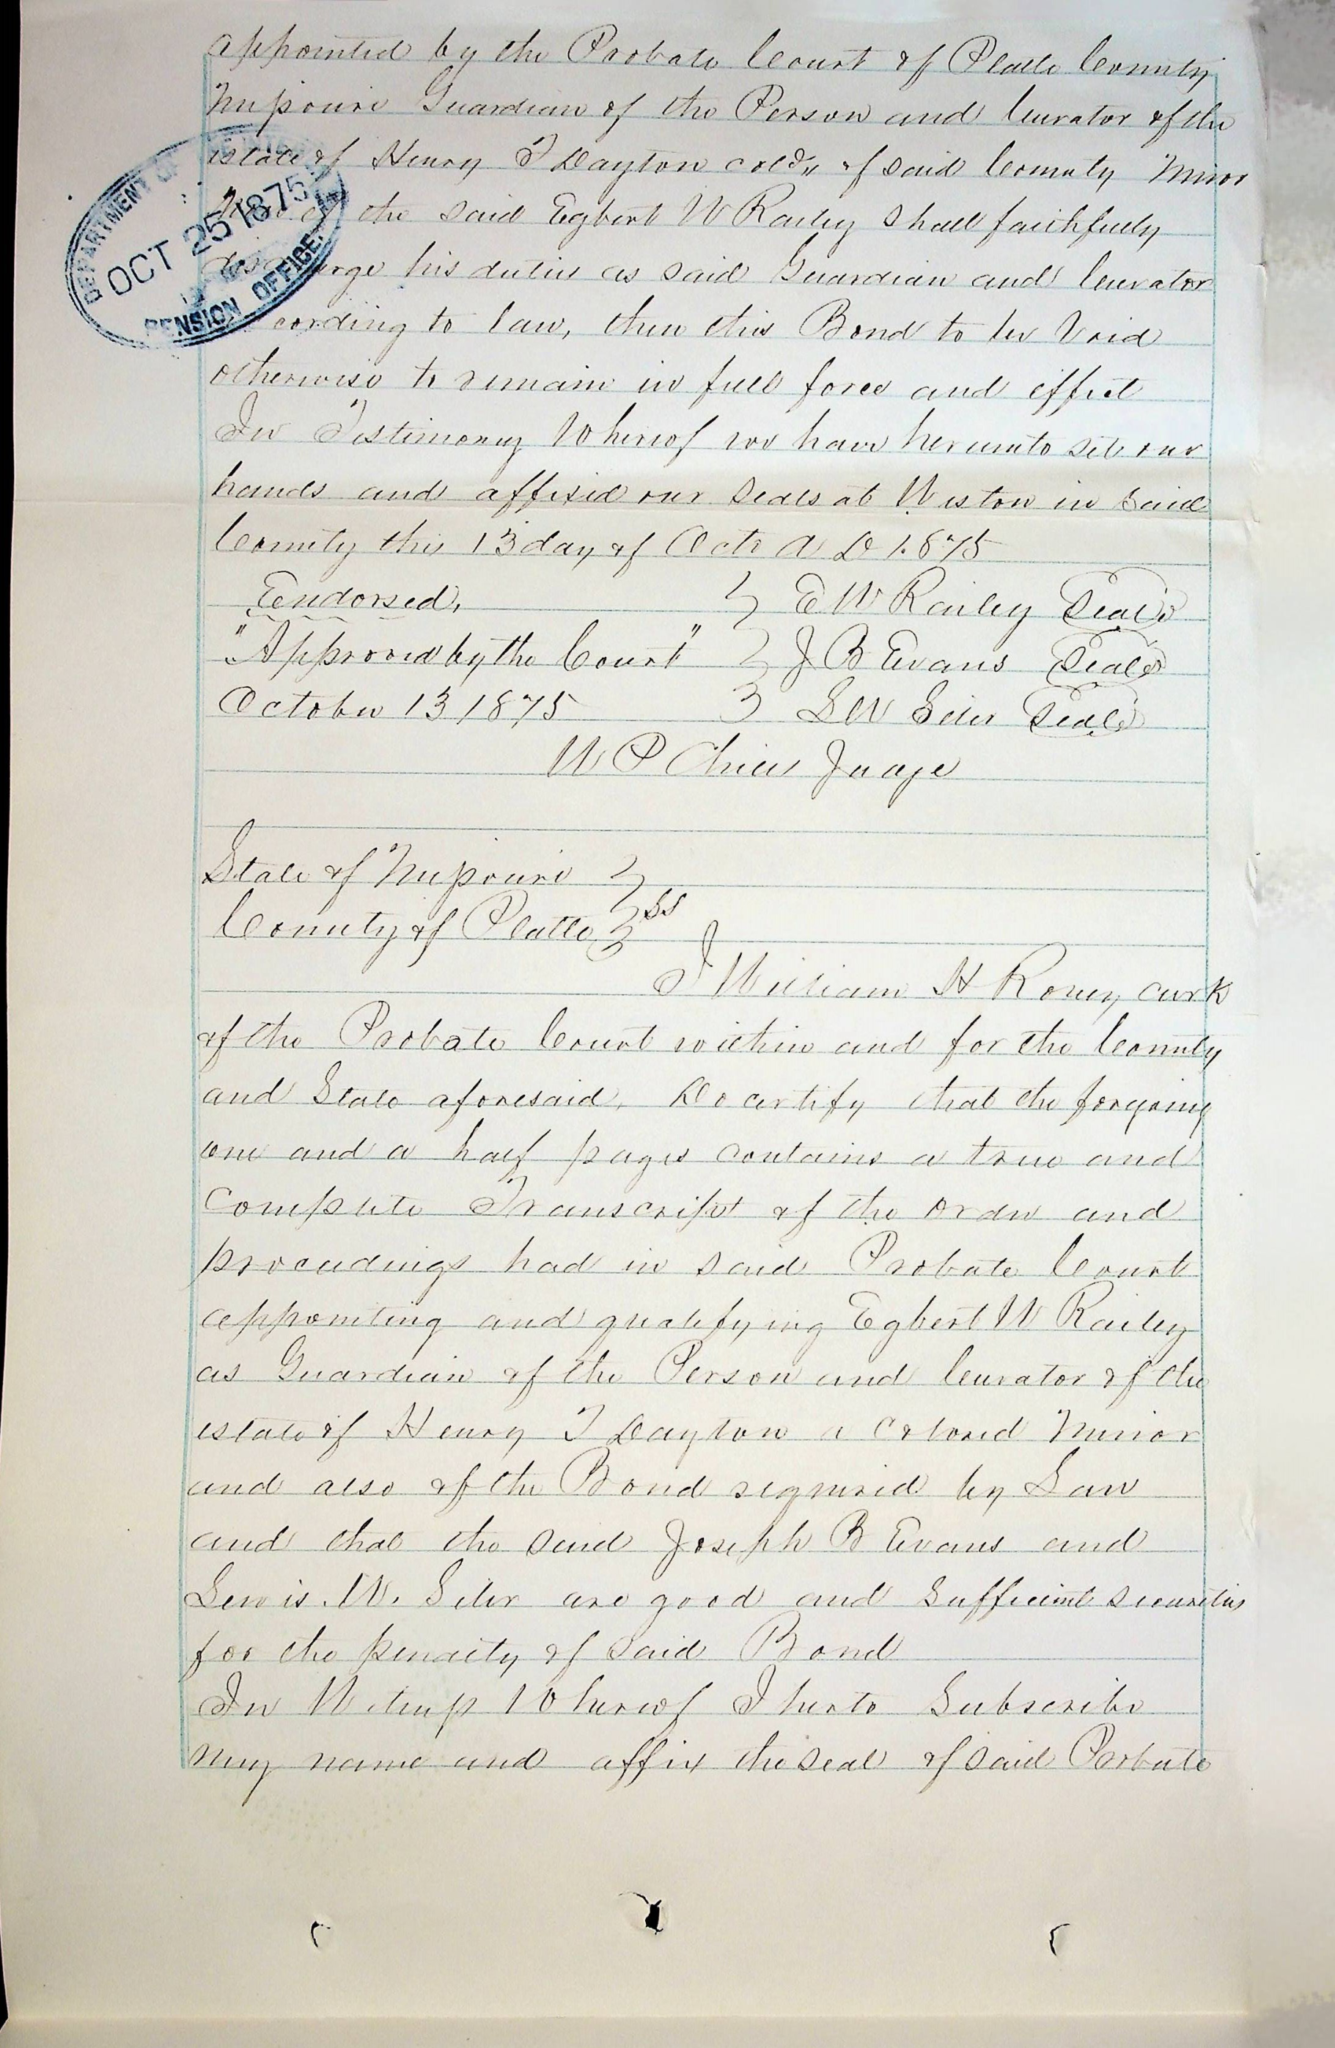 appointed by the Probate Court of Platte County
Missouri Guardian of the Person and Curator of the
estate of Henry T Dayton cold, of said County Minor
Now if the said Egbert W Railey shall faithfully
discharge his duties as said Guardian and Curator
cording to law, then this Bond to be Void
otherwise to remain in full force and effect
In Testimony Whereof we have hereunto set our
hands and affixed our seals at Weston in said
County this 13 day of Octr A D 1.875
Endorsed, E W Railey Seal
"Approved by the Court" J B Evans Seal
October 13 1875 L W Siler Seal
W P Judge
State of Missouri
County of Platte SS
I William H Roney Clerk
of the Probate Court within and for the County
and State aforesaid, Do certify that the foregoing
one and a half pages contains a true and
complete Transcript of the order and
proceedings had in said Probate Court
appointing and qualifying Egbert W Railey
as Guardian of the Person and Curator of the
estate of Henry T Dayton a Colored Minor
and also of the Bond required by Law
and that the said Joseph B Evans and
Lewis. W. Siler are good and sufficient securities
for the penalty of said Bond
In Witness Whereof I herto subscribe
my name and affix the seal of said Probate
DEPARTMENT OF
OCT 25 1875
PENSION OFFICE.